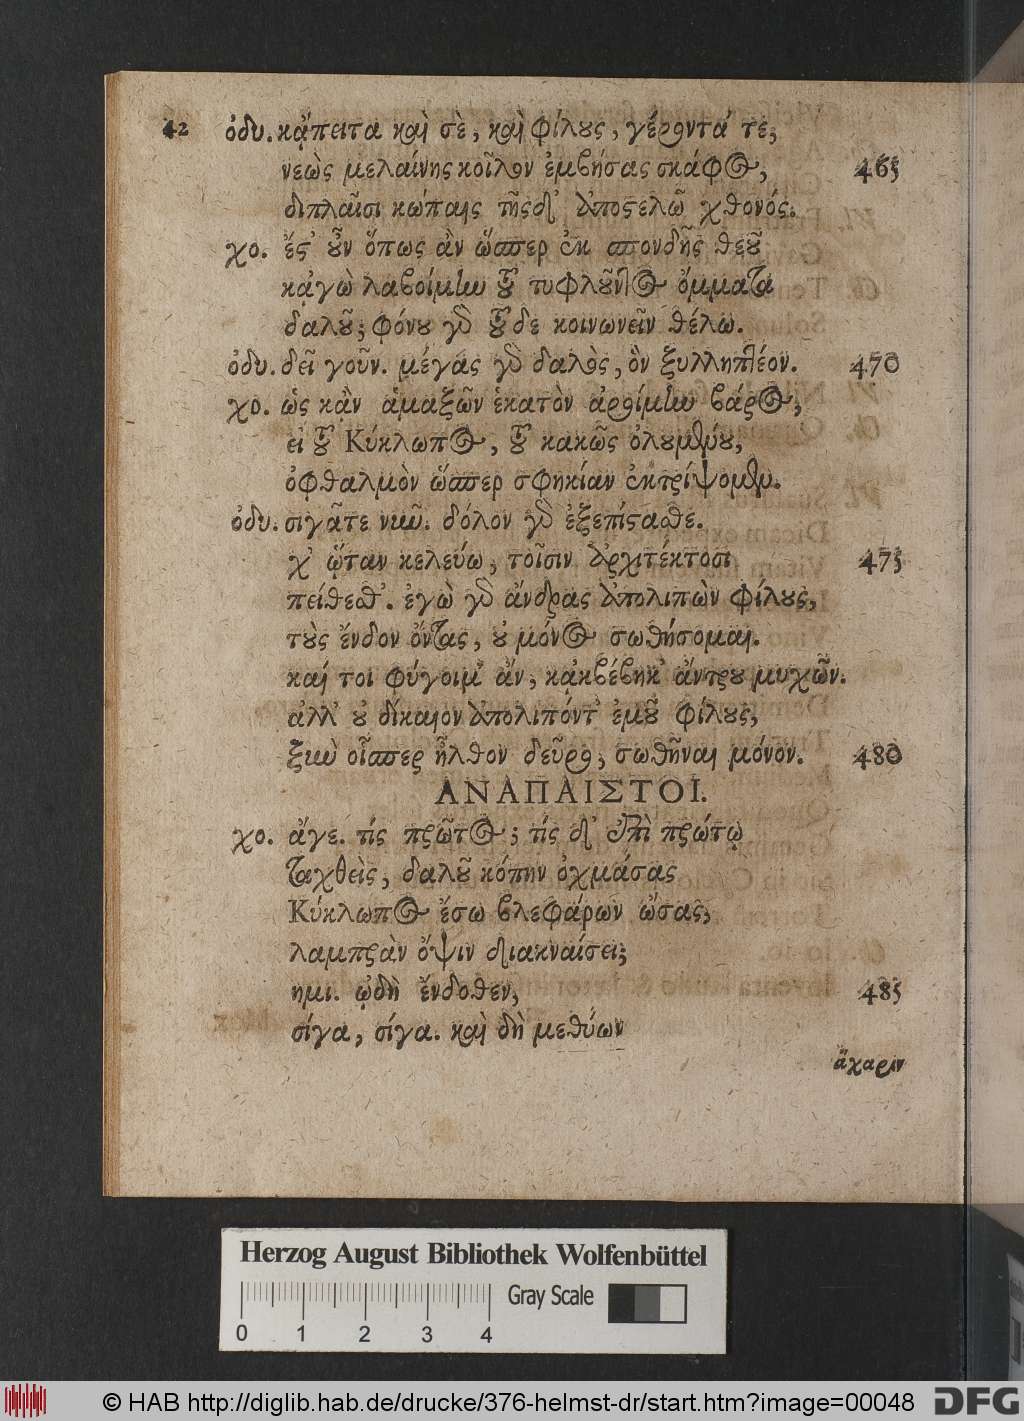 42 ὀδυ. κἄπειτα καὶ σὲ, καὶ φίλους, γέροντά τε,
νεὼς μελαίνης κοῖλον ἐμβήσας σκάφος, 465
διπλαῖσι κώπαις τῆςδ' ἀποστελῶ χθονός.
χο. ἔστ' οὖν ὅπως ἂν ὥσπερ ἐκ σπονδῆς θεοῦ
κᾀγὼ λαβοίμην τοῦ τυφλοῦντος ὄμματα
δαλοῦ; φόνου γὰρ τοῦδε κοινωνεῖν θέλω.
ὀδυ. δεῖ γοῦν. μέγας γὰρ δαλὸς, ὃν ξυλληπτέον. 470
χο. ὡς κἂν ἁμαξῶν ἑκατὸν ἀροίμην βάρος,
εἰ τοῦ Κύκλωπος, τοῦ κακῶς ὀλουμένου,
ὀφθαλμὸν ὥσπερ σφηκίαν ἐκτρίψομεν.
ὀδυ. σιγᾶτε νῦν. δόλον γὰρ ἐξεπίστασθε.
χ' ᾥταν κελεύω, τοῖσιν ἀρχιτέκτοσι 475
πείθεσθ'. ἐγὼ γὰρ ἄνδρας ἀπολιπὼν φίλους,
τοὺς ἔνδον ὄντας, οὐ μόνος σωθήσομαι.
καί τοι φύγοιμ' ἄν, κᾀκβέβηκ' ἄντρου μυχῶν.
ἀλλ' οὐ δίκαιον ἀπολιπόντ' ἐμοῦ φίλους,
ξὺν οἷσπερ ἦλθον δεῦρο, σωθῆναι μόνον. 480
ΑΝΑΠΑΙΣΤΟΙ.
χο. ἄγε. τίς πρῶτος; τίς δ' ἐπὶ πρώτῳ
ταχθεὶς, δαλοῦ κόπην ὀχμάσας
Κύκλωπος ἔσω βλεφάρων ὤσας,
λαμπρὰν ὄψιν διακναίσει;
ημι. ᾠδὴ ἔνδοθεν, 485
σίγα, σίγα. καὶ δὴ μεθύων
ἄχαριν
Herzog August Bibliothek Wolfenbüttel
Gray Scale
0 1 2 3 4
© HAB http://diglib.hab.de/drucke/376-helmst-dr/start.htm?image=00048 DFG